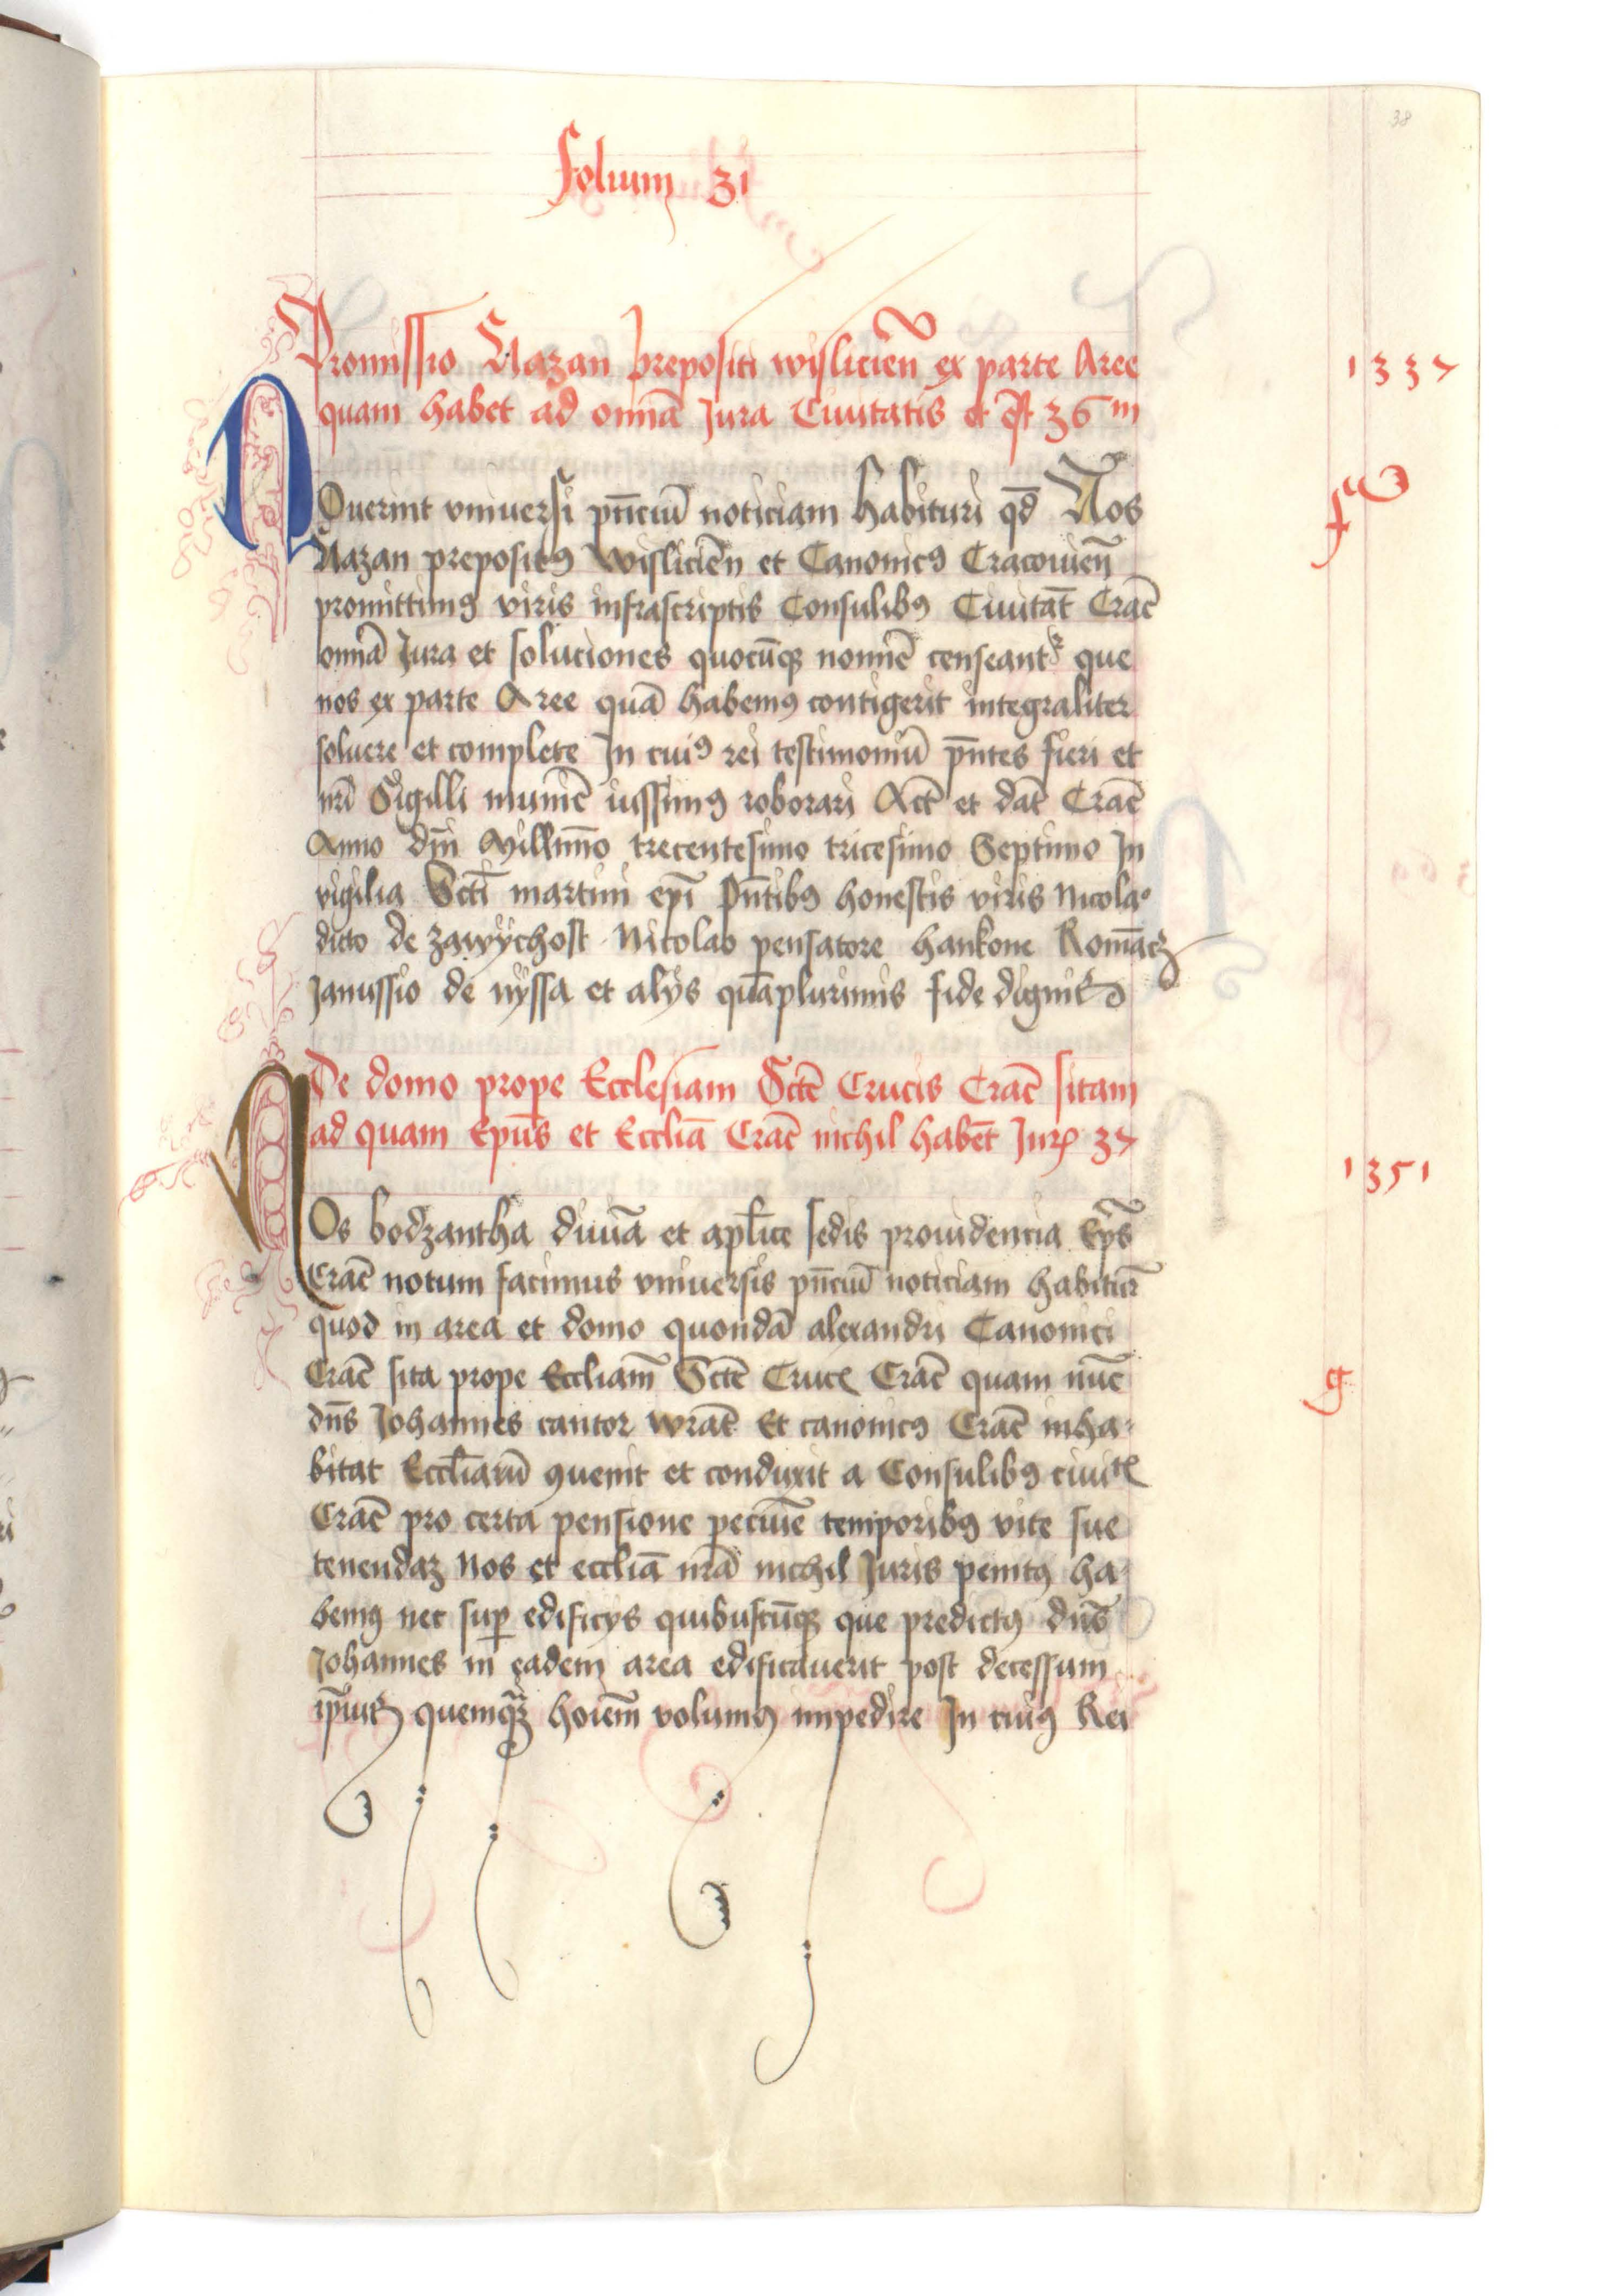 38
folium 31
Promissio Nazan prepositi wislicien̄ ex parte Aree
quam habet ad omnia Jura Ciuitatis et est 36m
1337
NOuerint vniuersi pn̄ciū noticiam habituri qd̄ Nos
Nazan prepositꝰ wislicien̄ et Canonicꝰ Cracouien̄
promittimꝰ viris infrascriptis Consulibꝰ Ciuitat̄ Crac̄
om̄ia Jura et soluciones quocūqꝫ nomiē censeantr que
nos ex parte Aree quā habemꝰ contigerit integraliter
soluere et complete In cuiꝰ rei testimoniū pn̄tes fieri et
nr̄i Sigilli munīe iussimꝰ roborari Act̄ et dat̄ Crac̄
Anno dn̄i Millīmo trecentesimo tricesimo Septimo In
vigilia Sct̄i martini ep̄i pn̄tibꝰ honestis viris Nicolao
dicto de zawÿchost Nicolao pensatore hankone Romāczᷤ
Janussio de nÿssa et alÿs quāplurimis fide dignis
De domo prope Ecclesiam Sctē Crucis Crac̄ sitam
ad quam Epūs et Eccliā Crac̄ nichil habēt Jurꝭ 37
1351
NOs bodzantha diuīa et apl̄ice sedis prouidencia Ep̄s
Crac̄ notum facimus vniuersis pn̄ciū noticiam habitur̄
quod in area et domo quondā alexandri Canonici
Crac̄ sita prope Eccliam̄ Sctē Crucꝭ Crac̄ quam nūc
g
dn̄s Johannes cantor wrat̄ Et canonicꝰ Crac̄ inha-
bitat Eccl̄iarū ꝯuenit et conduxit a Consulibꝰ ciuitꝭ
Crac̄ pro certa pensione pecuīe temporibꝰ vite sue
tenendaꝫ Nos et eccliā nr̄a nichil Juris penitꝰ ha-
bemꝰ nec suꝑ edificÿs quibuscūqꝫ que predictꝰ dn̄s
Johannes in eadem area edificauerit post decessum
ip̄iuꝰ quemqꝫ hoīem̄ volumꝰ impedire In cuiꝰ Rei